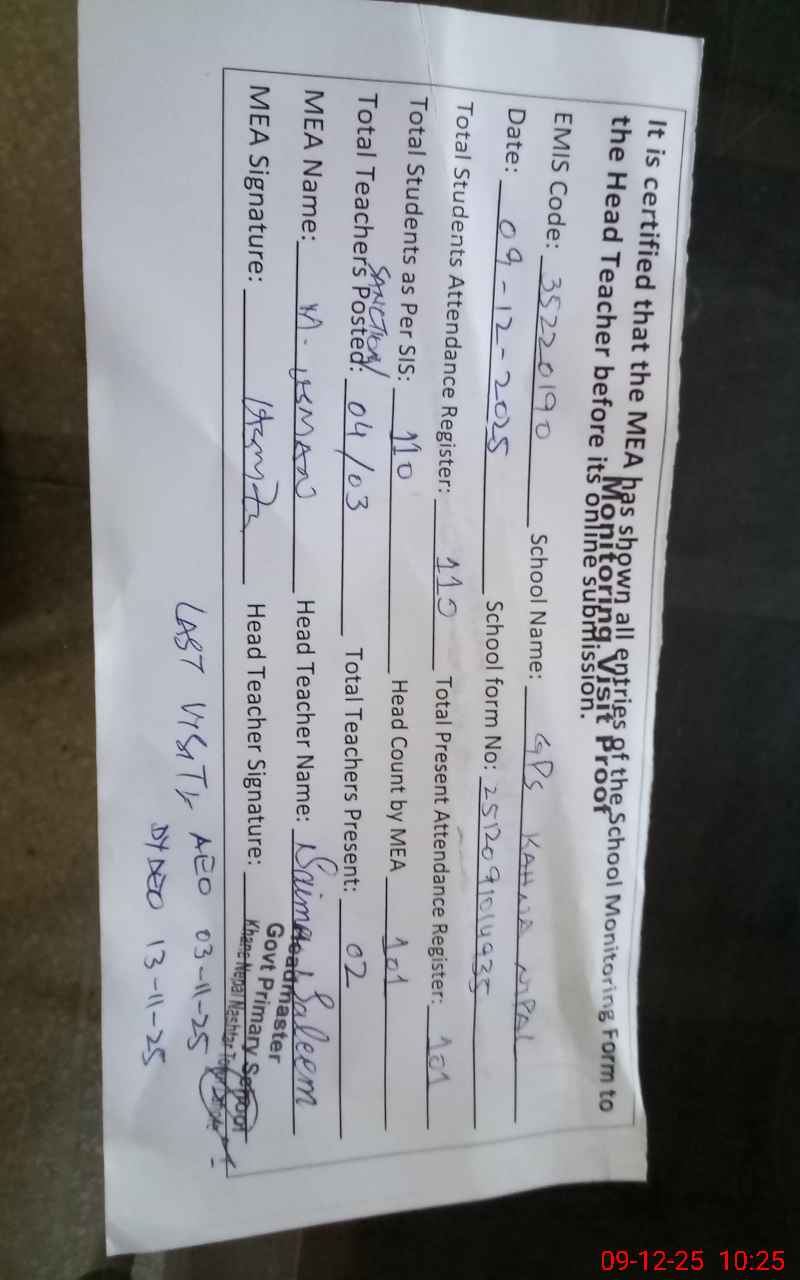 Monitoring Visit Proof
It is certified that the MEA has shown all entries of the School Monitoring Form to
the Head Teacher before its online submission.
EMIS Code: 35220190 School Name: GPS KAHNA NIPAL
Date: 09-12-2025 School form No: 2512091014935
Total Students Attendance Register: 110 Total Present Attendance Register: 101
Total Students as Per SIS: 110 Head Count by MEA 101
SANCTION/
Total Teachers Posted: 04/03 Total Teachers Present: 02
MEA Name: M. USMAN Head Teacher Name: Naima Saleem
MEA Signature: Head Teacher Signature:
Headmaster
Govt Primary School
Nepal Nashtar Town
LAST VISIT: AEO 03-11-25
DYDEO 13-11-25
09-12-25 10:25